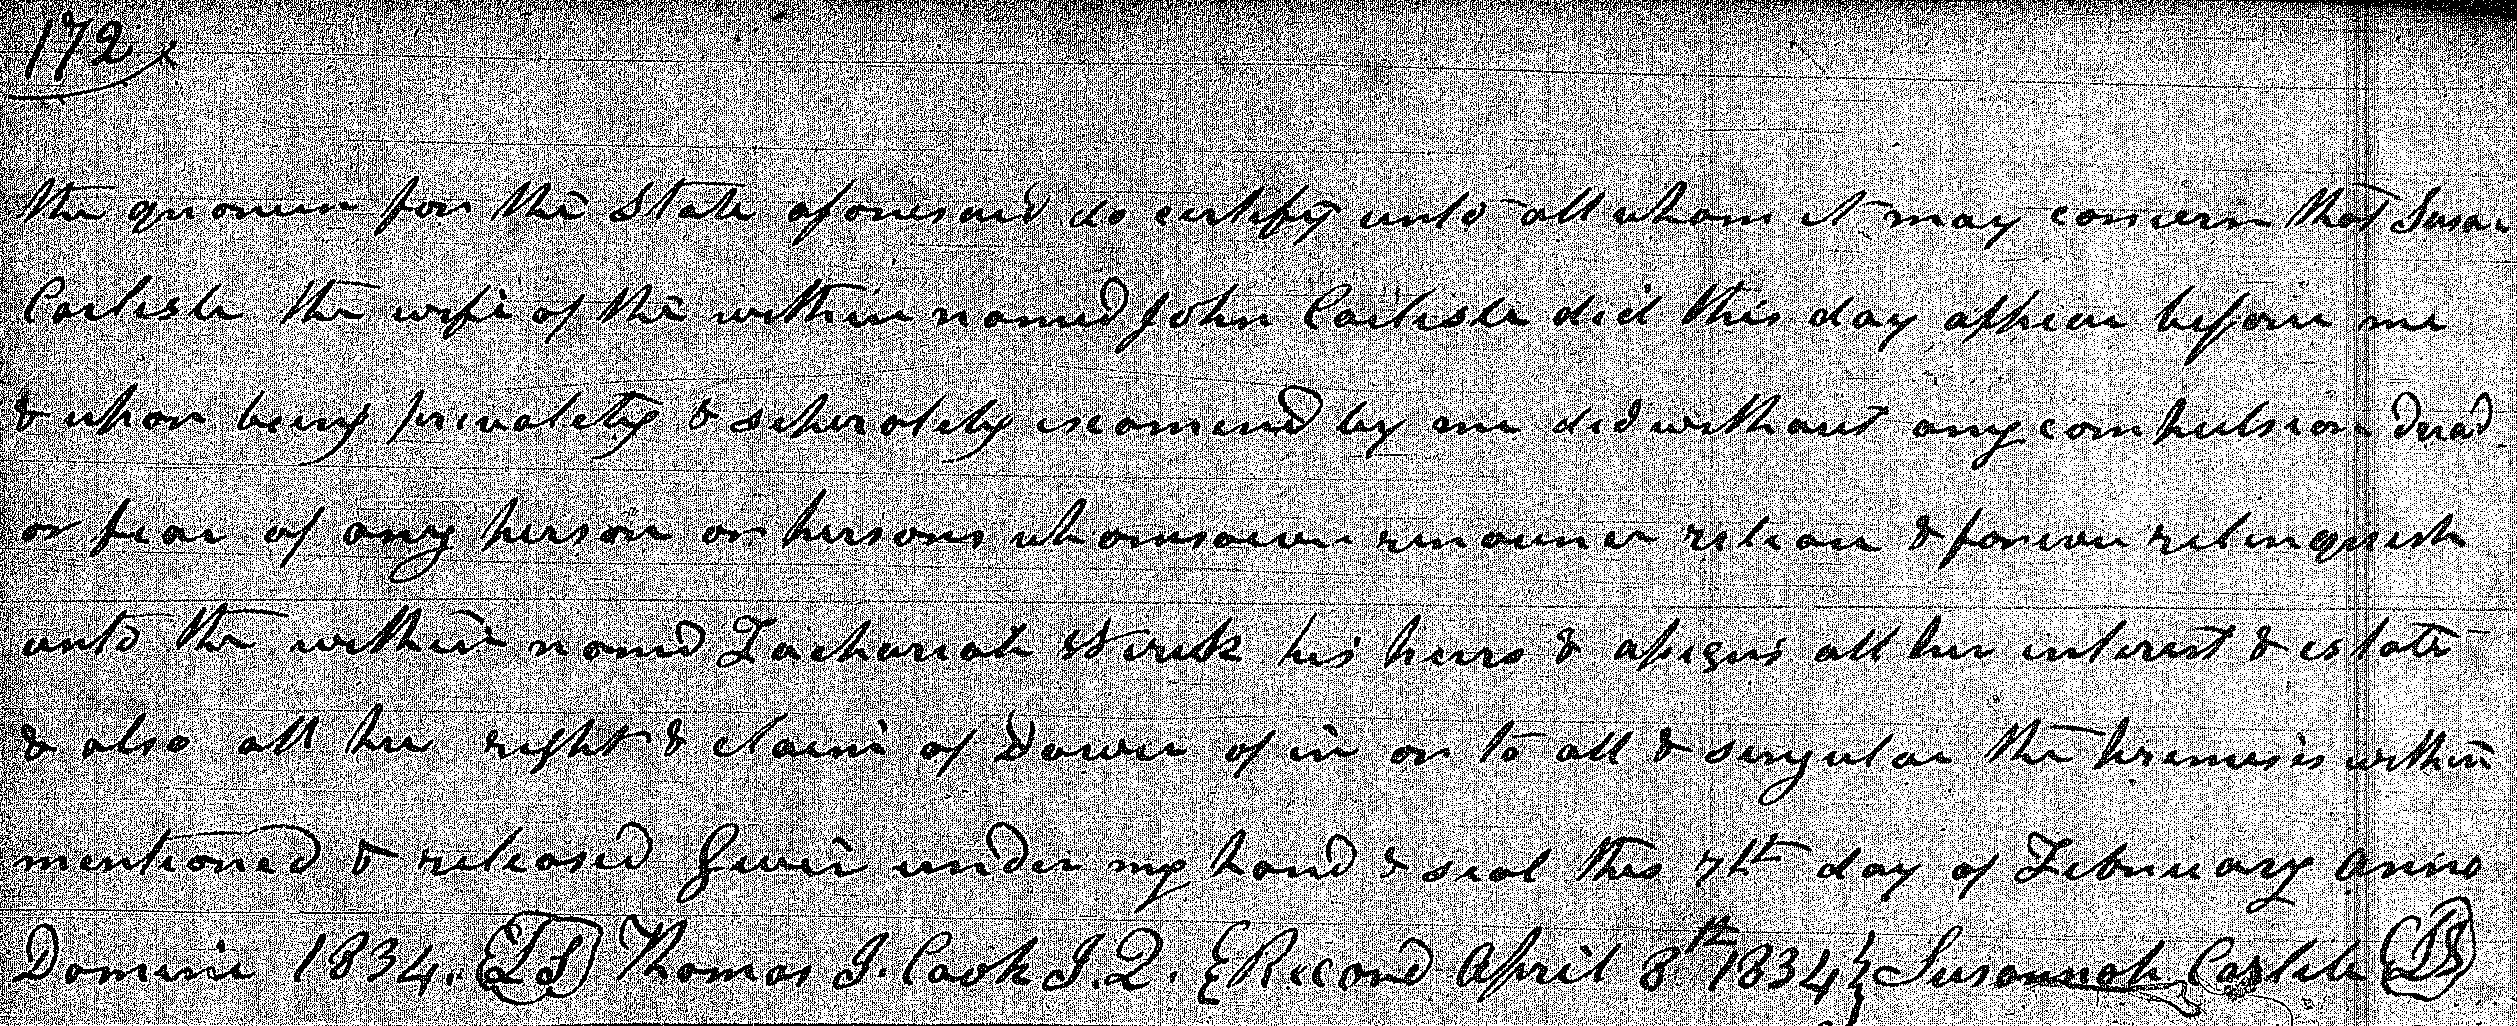 172
the quorum for the State aforesaid do certify unto all whom it may concern that Susan
Carlisle the wife of the within named John Carlisle did this day appear before me
& upon being privately & seperately examined by me did without any compulsion dread
or fear of any person or persons whomsoever renounce release & forever relinquish
unto the within named Zachariah his heirs & assigns all her interest & estate
& also all her right & claim of Dower of in or to all & singular the premises within
mentioned & released Given under my hand & seal this 7th day of February anno
Domini 1834. LS Thomas J. Cook J.Q. Record April 8th 1834 Susannah Carlile LS